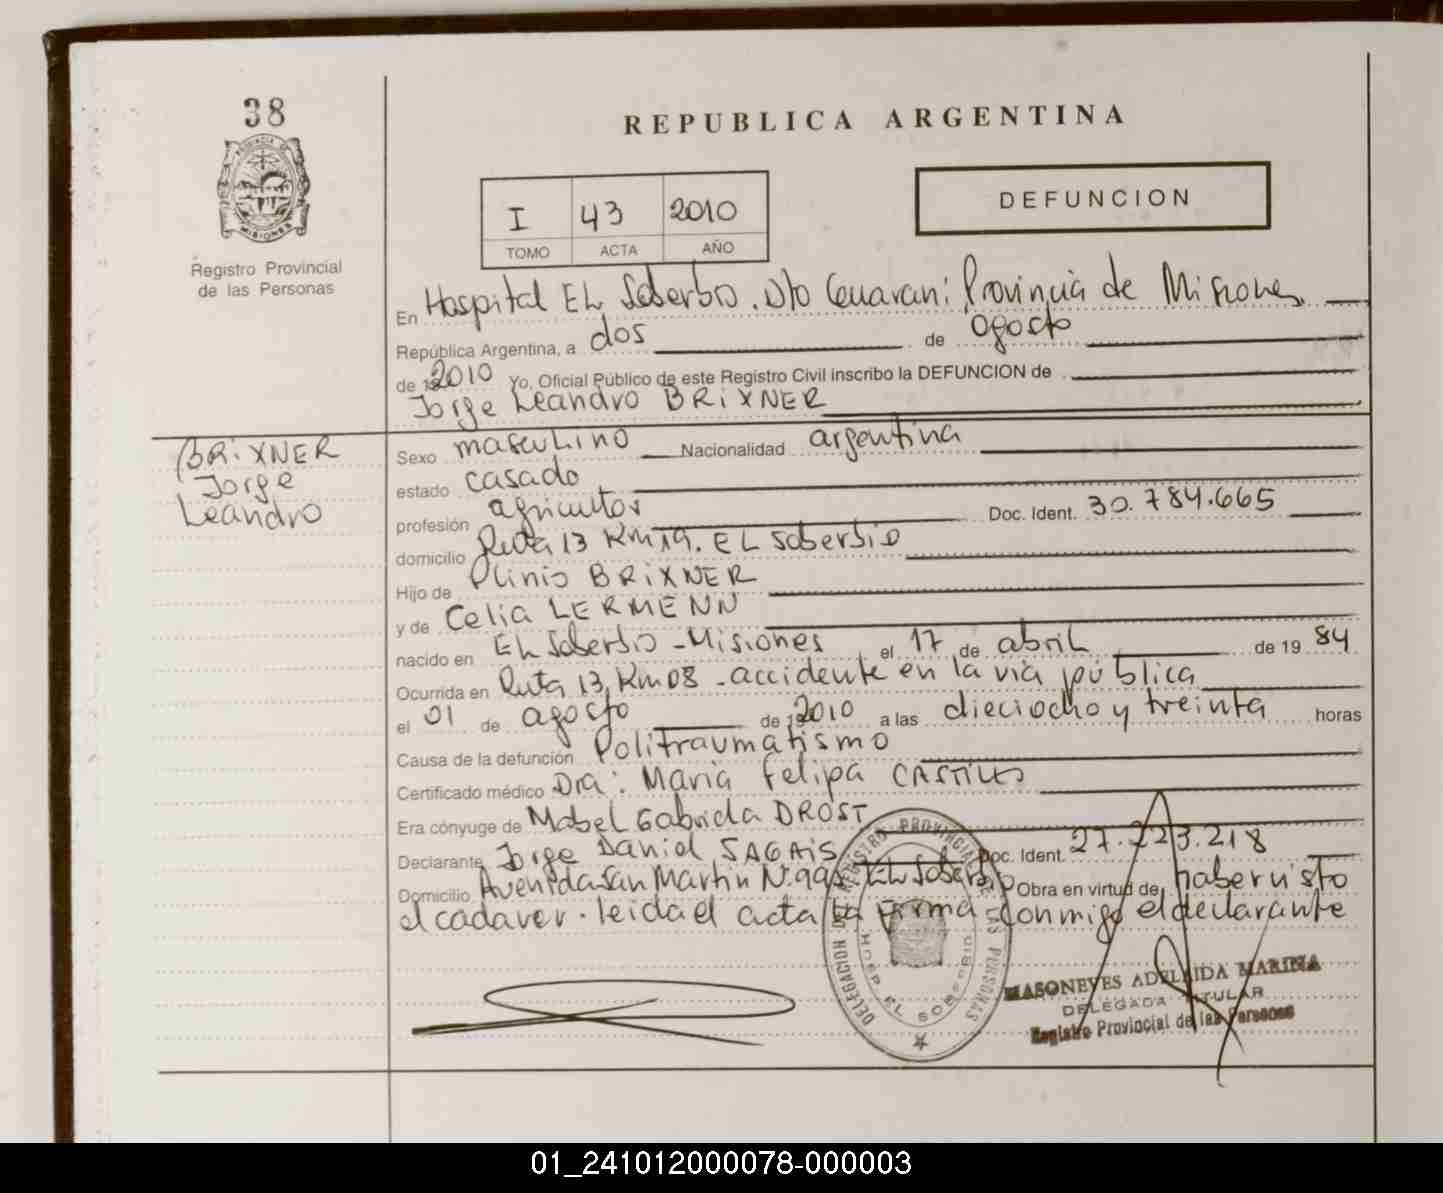 38
REPUBLICA ARGENTINA
PROVINCIA DE MISIONES
Registro Provincial
de las Personas
I 43 2010
TOMO ACTA AÑO
DEFUNCION
En Hospital EL Soberbio. Dto Guarani Provincia de Misiones
República Argentina, a dos de agosto
de 2010 Yo, Oficial Público de este Registro Civil inscribo la DEFUNCION de
Jorge Leandro BRIXNER
BRIXNER
Jorge
Leandro
Sexo masculino Nacionalidad argentina
estado casado
profesión agricultor Doc. Ident. 30.784.665
domicilio Ruta 13 Km 19. EL Soberbio
Hijo de Plinio BRIXNER
y de Celia LERMENN
nacido en EL Soberbio - Misiones el 17 de abril de 1984
Ocurrida en Ruta 13, Km 08 - accidente en la via pública
el 01 de agosto de 2010 a las dieciocho y treinta horas
Causa de la defunción Politraumatismo
Certificado médico Dra: Maria Felipa CASTILLO
Era cónyuge de Mabel Gabriela DROST
Declarante Jorge Daniel SAGAIS Doc. Ident. 27.223.218
Domicilio Avenida San Martin N. 990. EL Soberbio Obra en virtud de haber visto
el cadaver. leida el acta la firma conmigo el declarante
DELEGACION DE REGISTRO PROVINCIAL DE LAS PERSONAS
HOSP. EL SOBERBIO
MASONEVES ADELAIDA MARINA
DELEGADA TITULAR
Registro Provincial de las Personas
01_241012000078-000003